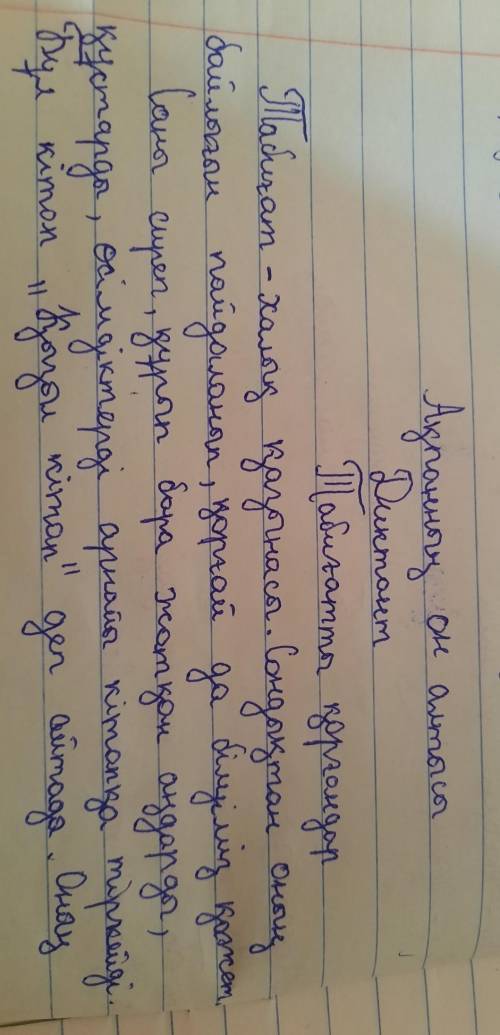 Ақпанның он алтысы
Диктант
Табиғатты қорғаңдар
Табиғат - халық қазынасы. Сондықтан оның
байлығын пайдаланып, қорғай да білуіміз қажет.
Саны сиреп, құрып бара жатқан аңдарды,
құстарды, өсімдіктерді арнайы кітапқа тіркейді.
Бұл кітап "Қызыл кітап" деп айтада. Оның